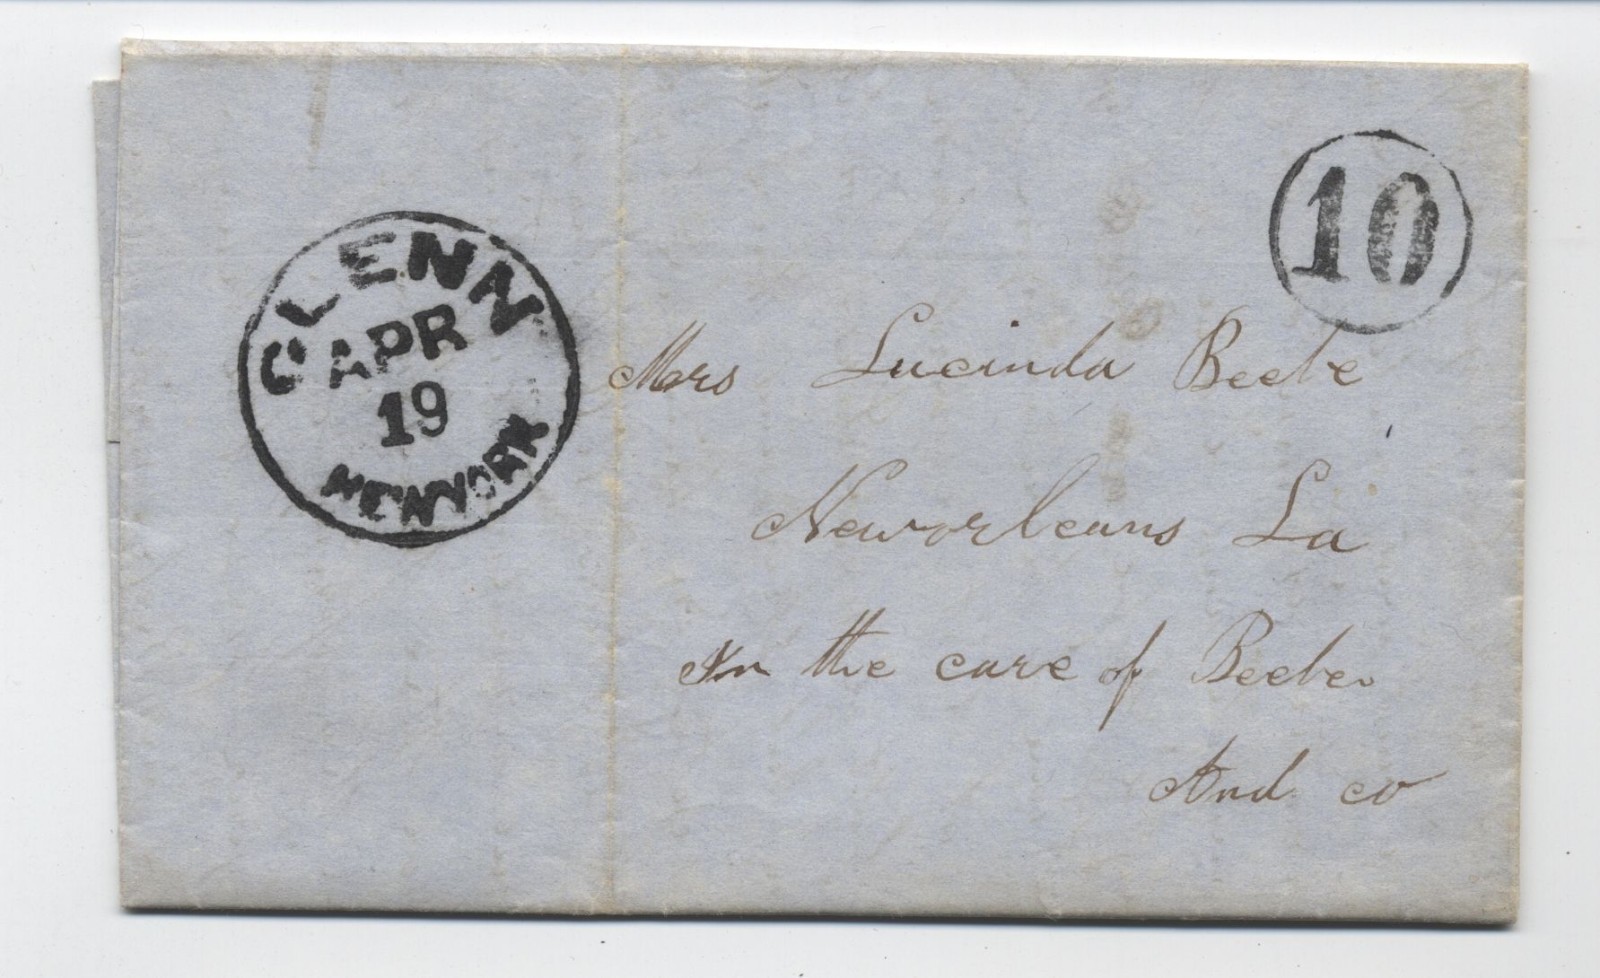 GLENN
APR
19
NEW YORK
10
Mrs Lucinda Beebe
Neworleans La
In the care of Beebe
And co